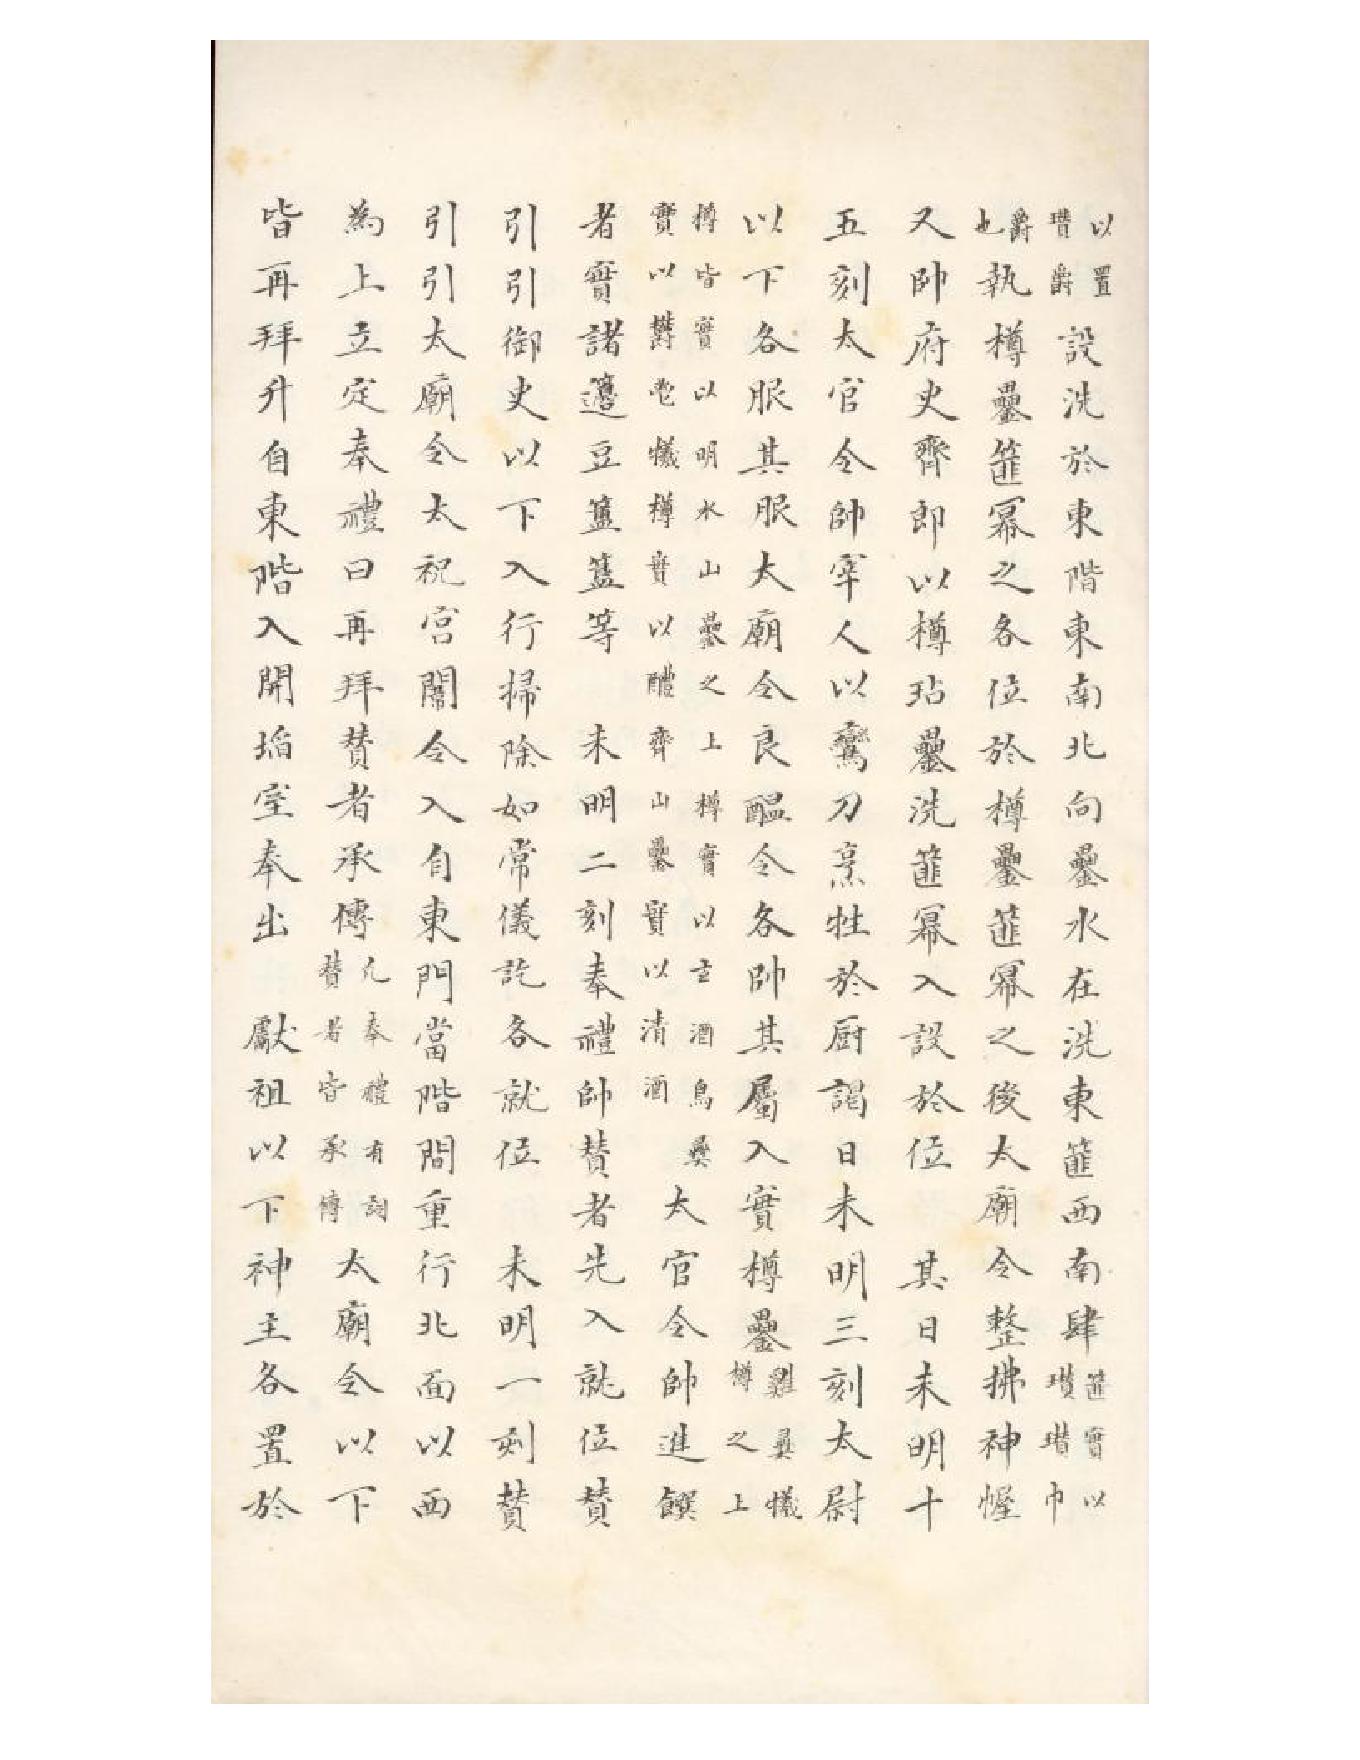 以置瓉爵設洗於東階東南北向罍水在洗東篚西南肆篚實以瓚瓉巾
爵也執樽罍篚冪之各位於樽罍篚冪之後太廟令整拂神幄
又帥府史齊郎以樽玷罍洗篚冪入設於位　其日未明十
五刻太官令帥宰人以鸞刀烹牲於厨謁日未明三刻太尉
以下各服其服太廟令良醖令各帥其屬入實樽罍雞彝犧樽之上
樽皆實以明水山罍之上樽實以玄酒鳥彝實以鬱鬯犧樽實以醴齊山罍實以清酒太官令帥進饌
者實諸籩豆簋簠等　未明二刻奉禮帥贊者先入就位贊
引引御史以下入行掃除如常儀訖各就位　未明一刻贊
引引太廟令太祝宮闈令入自東門當階間重行北面以西
為上立定奉禮曰再拜贊者承傳凡奉禮有詞贊者皆承傳太廟令以下
皆再拜升自東階入開埳室奉出　獻祖以下神主各置於